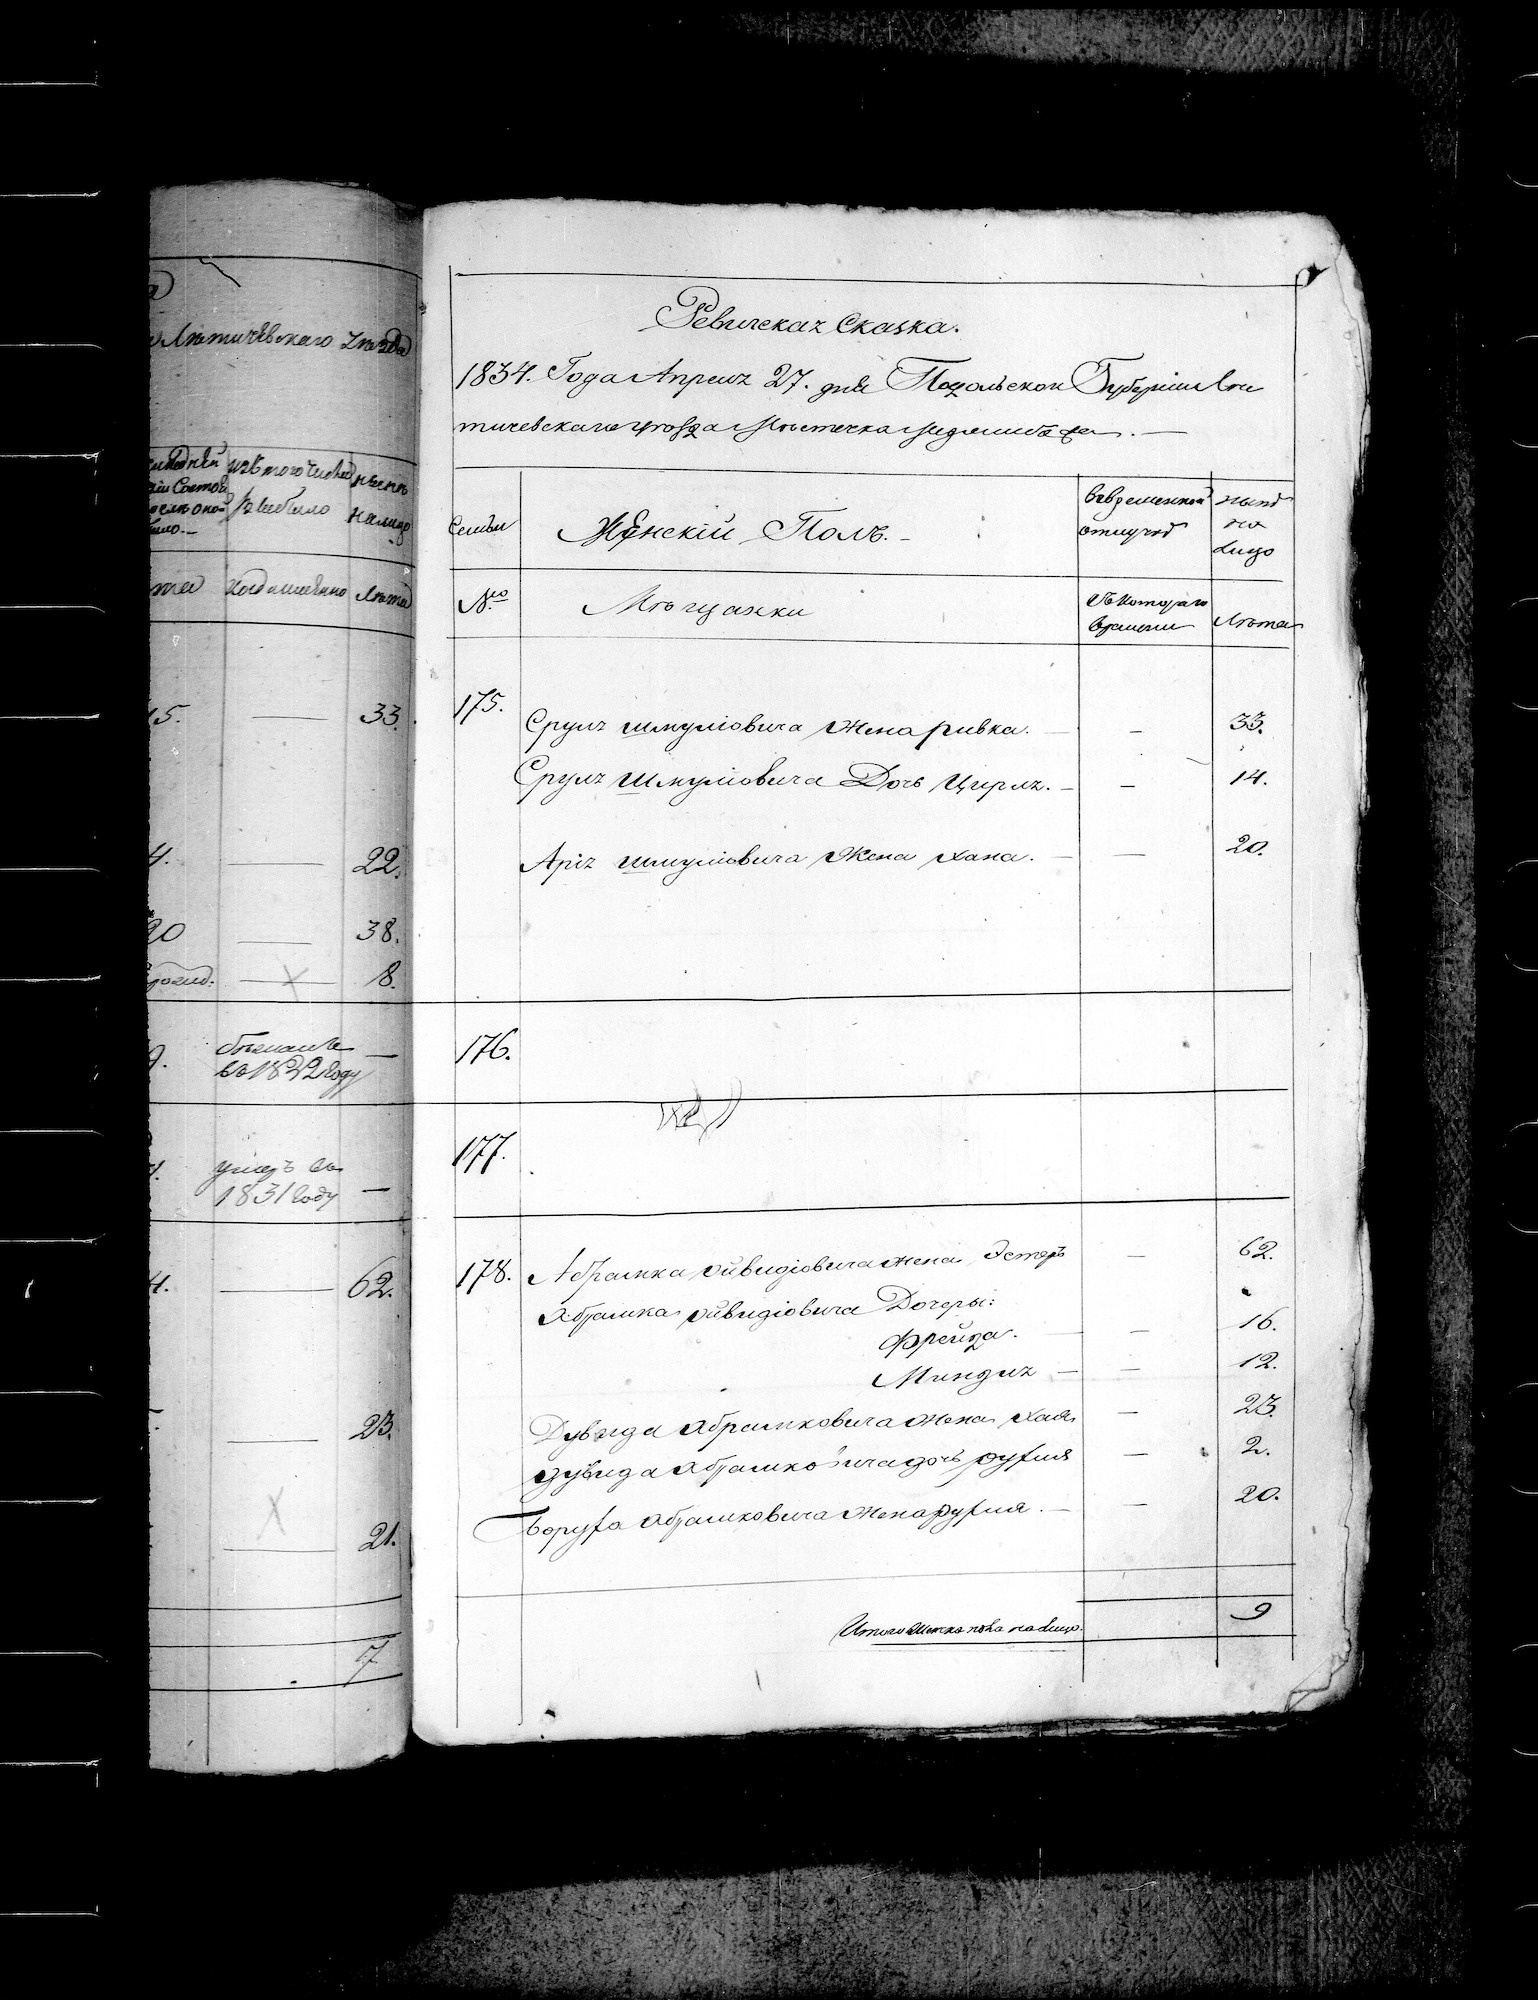 Лѣтичевского уѣзда
изъ того числа
выбыло
нынѣ
налицо
лѣта
15.
33.
4.
22.
20
38.
8.
въ 1832 году
умеръ въ
1831 году
4.
62.
23.
21.
7
Ревизская Сказка.
1834. Года Апреля 27. дня Подольской Губерніи Лѣ
тичевскаго уѣзда Мѣстечка Меджибожа.
Семьи
Женскій Полъ.
Въ временной
отлучкѣ
нынѣ
на
лицо
№
Мѣщанки
Съ котораго
времени
Лѣта
175.
Сруля Шмуліовича Жена Ривка. — — 33.
Сруля Шмуліовича Дочь Цирля. — — 14.
Арія Шмуліовича Жена Хана. — — 20.
176.
177.
178. Абрамка Дувидіовича жена Эстеръ — 62.
Абрамка Дувидіовича Дочеры:
Фрейда. — — 16.
Миндля — — 12.
Дувида Абрамковича жена Хая — 23.
Дувида Абрамковича дочь Рухля — 2.
Боруха Абрамковича жена Рухля. — — 20.
Итого женска пола на лицо. 9